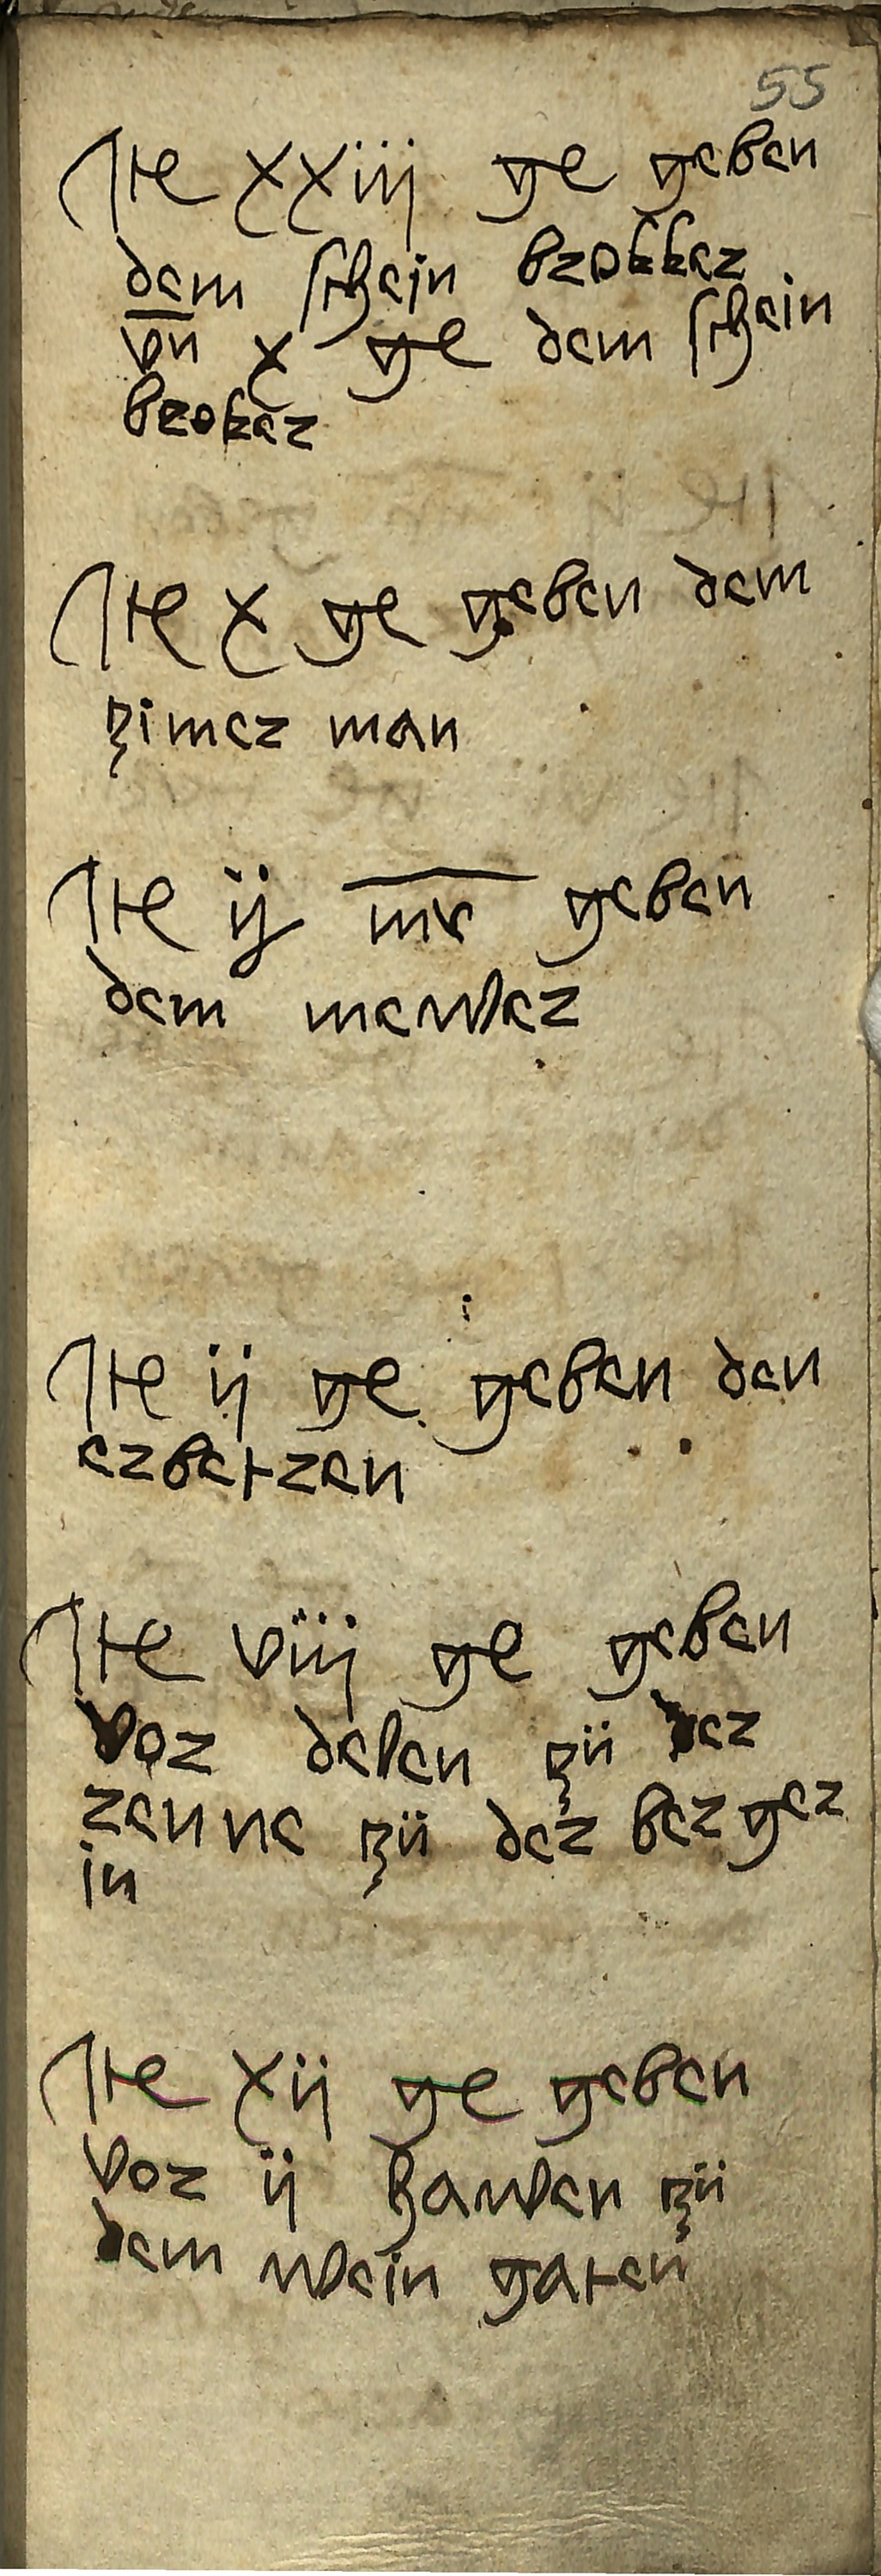 55
Ite xxiij ge geben
dem schein brokker
vn x ge dem schein
broker
Ite x ge geben dem
zimer man
Ite ij mr geben
dem mewer
Ite ij ge geben den
erbetren
Ite viij ge geben
vor delen zü der
renne zü der berger
in
Ite xij ge geben
vor ij hawen zü
dem wein gaten